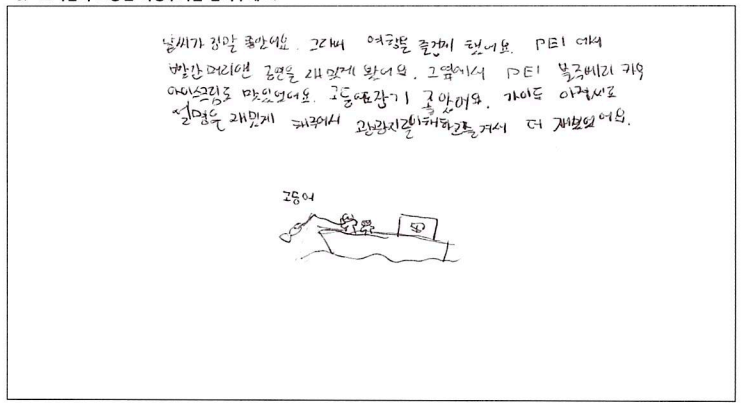 날씨가 정말 좋았어요. 그래서 여행을 즐겁게 했어요. PEI 에서
빨간머리앤 공연을 재밌게 봤어요. 그옆에서 PEI 블루베리 카우
아이스크림도 맛있었어요. 고등어잡기 좋았어요. 가이드 아저씨도
설명을 재밌게 해주어서 관광지를 이해하고 즐겨서 더 재밌었어요.
고등어